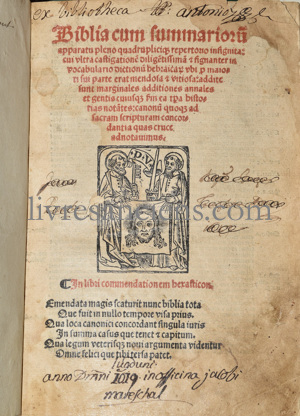 ex Bibliotheca
Biblia cum summariorũ
apparatu pleno quadrupliciqȝ repertorio insignita:
cui vltra castigationẽ diligẽtissimã & signanter in
vocabulario dictionũ hebraicaꝝ vbi ꝓ maiori
ti sui parte erat mendosa & vitiosa: addite
sunt marginales additiones annales
et gentiũ cuiusqȝ
tias notãtes: canonũ quoqȝ ad
sacram scripturam concor
dantia quas cruce
adnotauimus.
D.V.
livresanciens.com
In libri commendationem hexasticon.
Emendata magis scaturit nunc biblia tota
Que fuit in nullo tempore visa prius.
Qua loca canonici concordant singula iuris
In summa casus que tenet & capitum.
Qua legum veterisqȝ noui argumenta videntur
Omine felici que tibi tersa patet.
Lugduni
anno Domini in officina Jacobi
mareschal